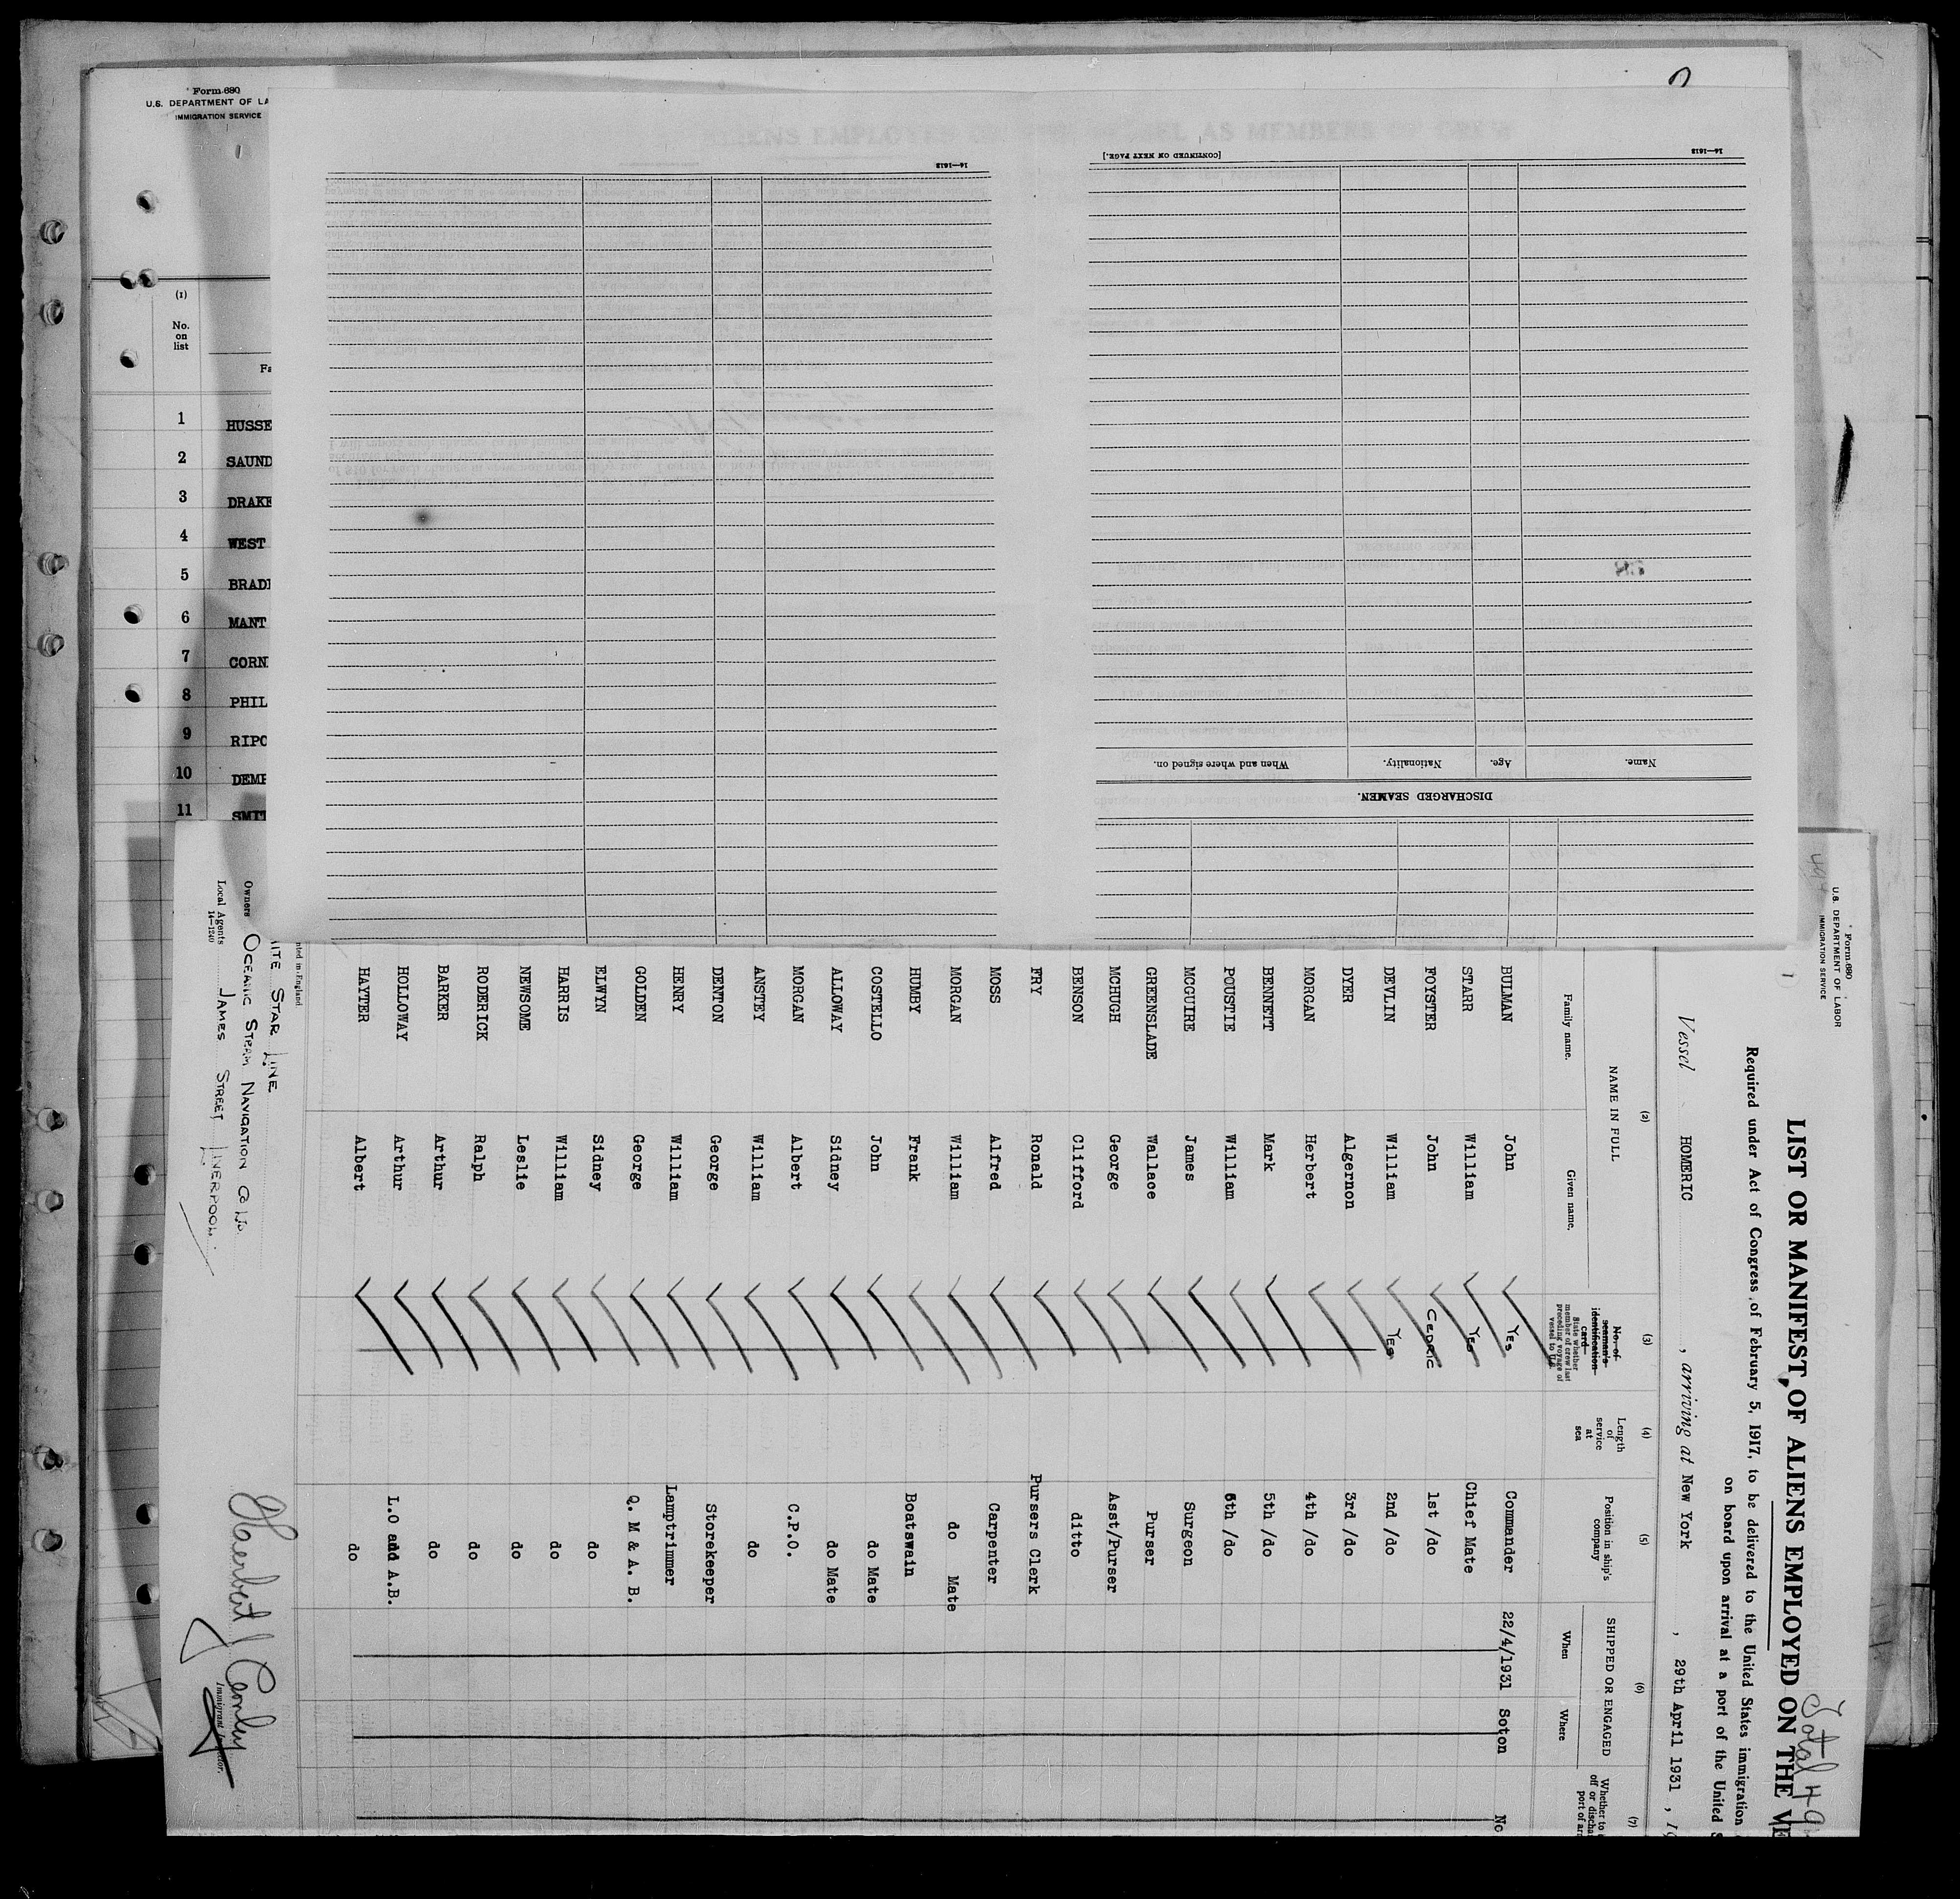 Form 680
U.S. DEPARTMENT OF LA
IMMIGRATION SERVICE
(1)
No.
on
list
Fa
1 HUSSE
2 SAUND
3 DRAKE
4 WEST
5 BRADI
6 MANT
7 CORN
8 PHIL
9 RIPO
10 DEMP
11 SMIT
14—1613
[CONTINUED ON NEXT PAGE.]
14—1613
DISCHARGED SEAMEN.
Name. Age. Nationality. When and where signed on.
Form 680
U.S. DEPARTMENT OF LABOR
IMMIGRATION SERVICE
1
Total 49
LIST OR MANIFEST OF ALIENS EMPLOYED ON THE VE
Required under Act of Congress of February 5, 1917, to be delivered to the United States immigration
on board upon arrival at a port of the United S
Vessel HOMERIC , arriving at New York , 29th April 1931 , 19
(2) (3) (4) (5) (6) (7)
NAME IN FULL
Family name. Given name.
No. of seaman's identification card
State whether member of crew last preceding voyage of vessel to U.S.
Length of service at sea
Position in ship's company
SHIPPED OR ENGAGED
When Where
Whether to
off or discha
port of arr
BULMAN John YES Commander 22/4/1931 Soton No
STARR William YES Chief Mate
FOYSTER John CEDRIC 1st /do
DEVLIN William YES 2nd /do
DYER Algernon 3rd /do
MORGAN Herbert 4th /do
BENNETT Mark 5th /do
POUSTIE William 6th /do
MCGUIRE James Surgeon
GREENSLADE Wallace Purser
MCHUGH George Asst/Purser
BENSON Clifford ditto
FRY Ronald Pursers Clerk
MOSS Alfred Carpenter
MORGAN William do Mate
HUMBY Frank Boatswain
COSTELLO John do Mate
ALLOWAY Sidney do Mate
MORGAN Albert C.P.O.
ANSTEY William do
DENTON George Storekeeper
HENRY William Lamptrimmer
GOLDEN George Q. M & A. B.
ELWYN Sidney do
HARRIS William do
NEWSOME Leslie do
RODERICK Ralph do
BARKER Arthur do
HOLLOWAY Arthur L.O and A.B.
HAYTER Albert do
nted in England.
ITE STAR LINE
Owners OCEANIC STEAM NAVIGATION Co LTD.
Local Agents JAMES STREET LIVERPOOL.
14—1240
Immigrant Inspector.